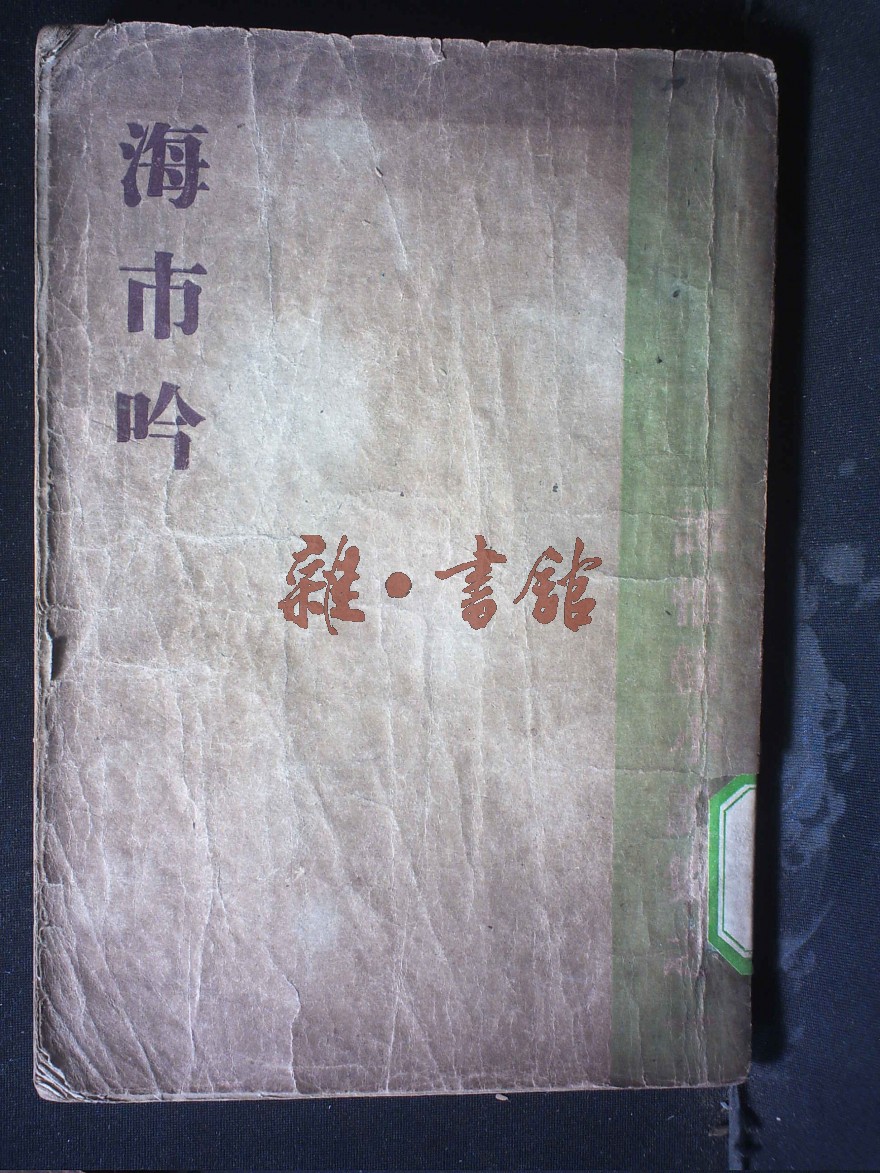 海市吟
雜·書館